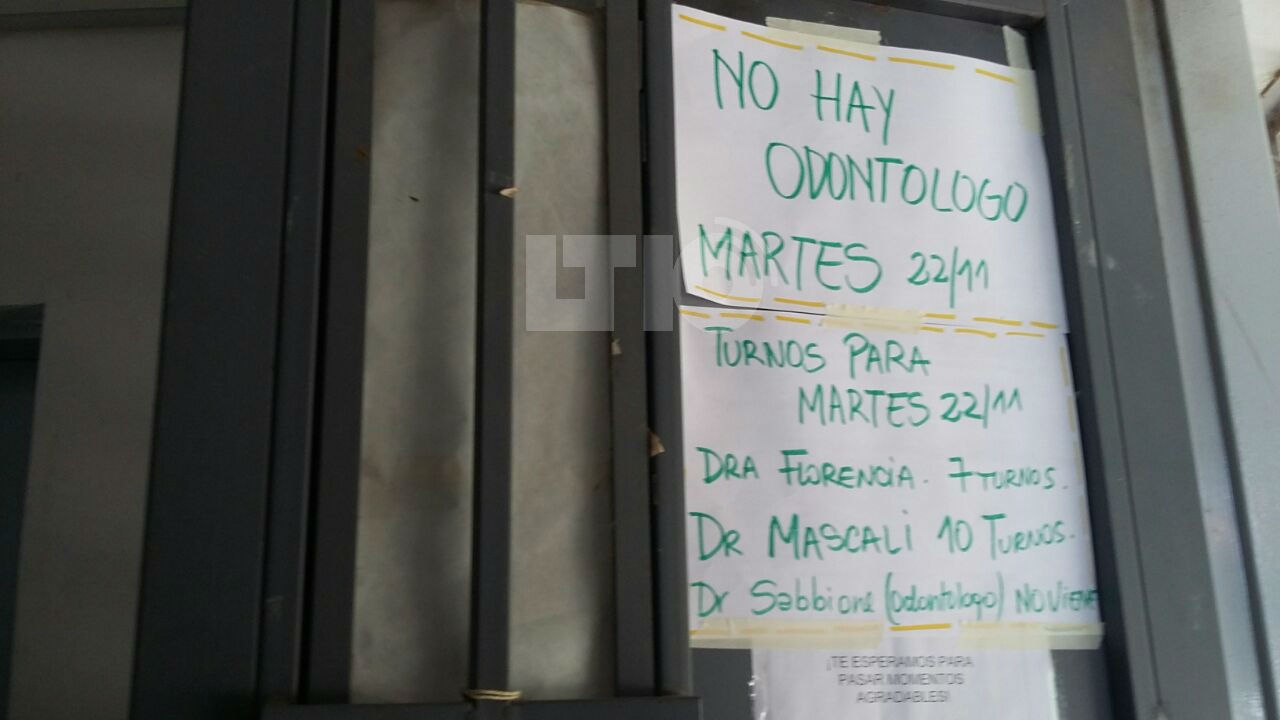 NO HAY
ODONTOLOGO
MARTES 22/11
TURNOS PARA
MARTES 22/11
DRA FLORENCIA. 7 TURNOS.
DR MASCALI 10 TURNOS.
Dr Sabbione (odontologo) NO VIENE
¡TE ESPERAMOS PARA
PASAR MOMENTOS
AGRADABLES!
LT10